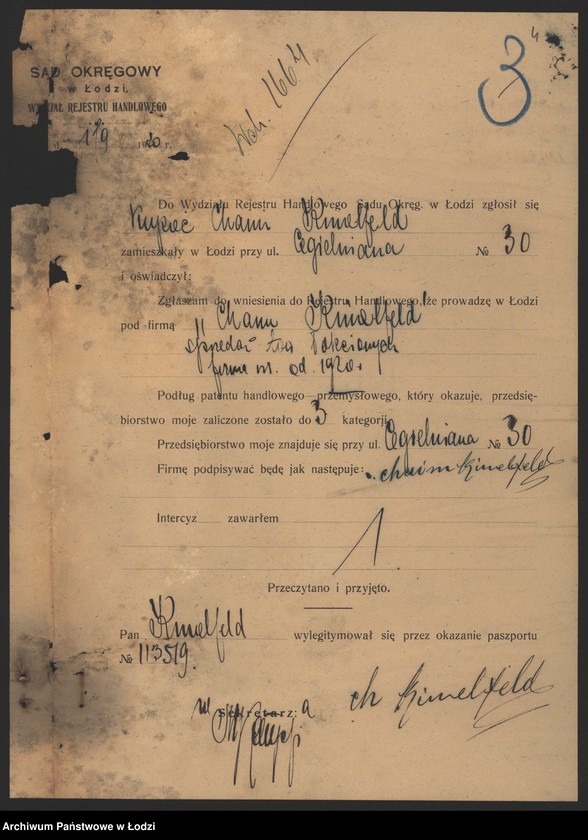 3
4
SĄD OKRĘGOWY
w Łodzi,
WYDZIAŁ REJESTRU HANDLOWEGO
r.
Wch. 1664.
Do Wydziału Rejestru Handlowego Sądu Okręg. w Łodzi zgłosił się
Kupiec Chaim Kimelfeld
zamieszkały w Łodzi przy ul. Cegielniana № 30
i oświadczył:
Zgłaszam do wniesienia do Rejestru Handlowego, że prowadzę w Łodzi
pod firmą „Chaim Kimelfeld"
sprzedaż łokciowych
od 1920 r
Podług patentu handlowego—przemysłowego, który okazuje, przedsię-
biorstwo moje zaliczone zostało do 3 kategorji
Przedsiębiorstwo moje znajduje się przy ul. Cegielniana № 30
Firmę podpisywać będę jak następuje: chaim kimelfeld
Intercyz zawarłem
Przeczytano i przyjęto.
Pan Kimelfeld wylegitymował się przez okazanie paszportu
№ 113519.
Sekretarz:
ch kimelfeld
Archiwum Państwowe w Łodzi